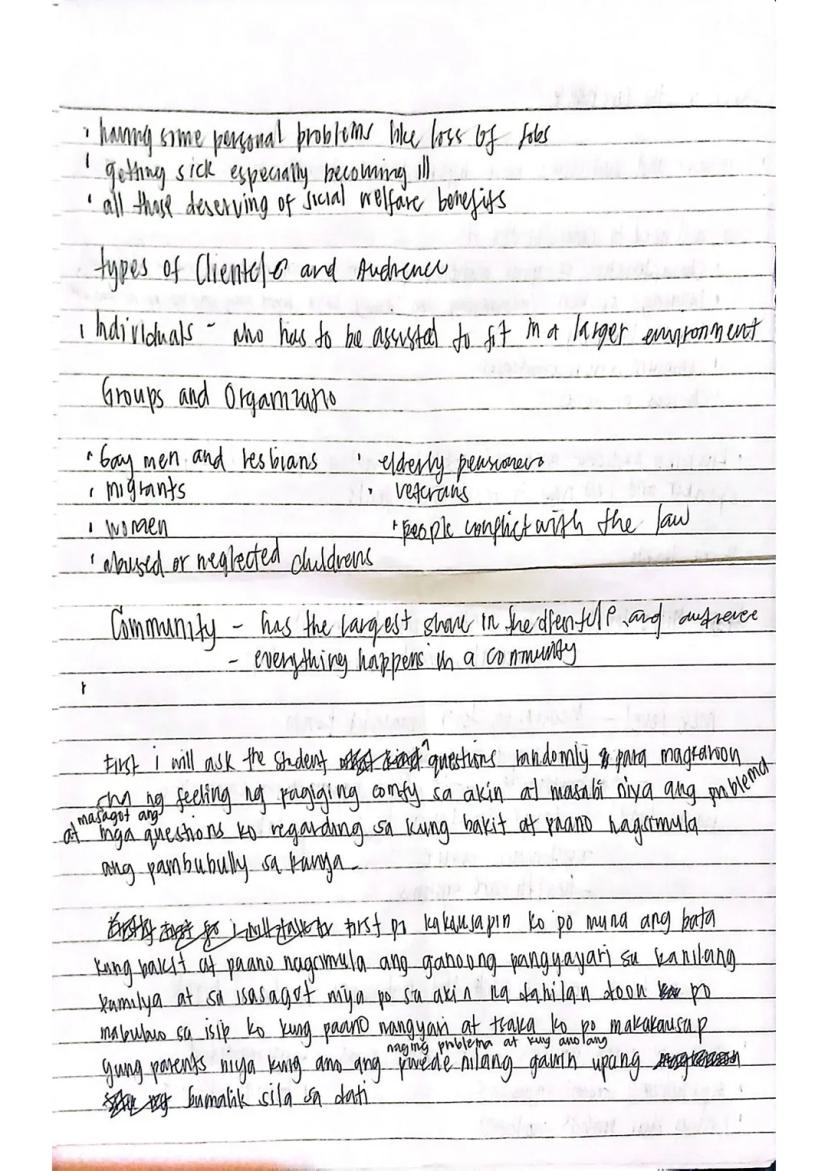 • having some personal problems like loss of jobs
• getting sick especially becoming ill
• all those deserving of social welfare benefits
types of Clientele and Audience
• Individuals - who has to be assisted to fit in a larger environment
Groups and Organizatio
• Gay men and lesbians • elderly pensioners
• migrants • veterans
• women • people conflict with the law
• abused or neglected childrens
Community - has the largest share in the clientele and audience
- everything happens in a community
First i will ask the student questions randomly para magkaroon
sha ng feeling ng pagiging comfy sa akin at masabi niya ang problema
at masagot ang mga questions ko regarding sa kung bakit at paano nagsimula
ang pambubully sa kanya.
first po kakausapin ko po muna ang bata
kung bakit at paano nagsimula ang ganoong pangyayari sa kanilang
pamilya at sa isasagot niya po sa akin na dahilan doon po
mabubuo sa isip ko kung paano nangyari at tsaka ko po makakausap
yung parents niya kung ano ang naging problema at kung ano lang pwede nilang gawin upang
bumalik sila sa dati